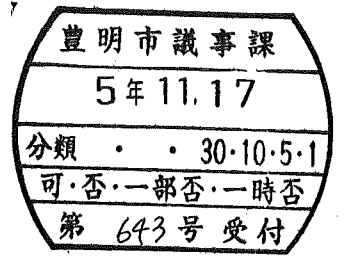 豊明市議事課
5年11.17
分類 ・ ・ 30・10・5・1
可・否・一部否・一時否
第 643 号 受付